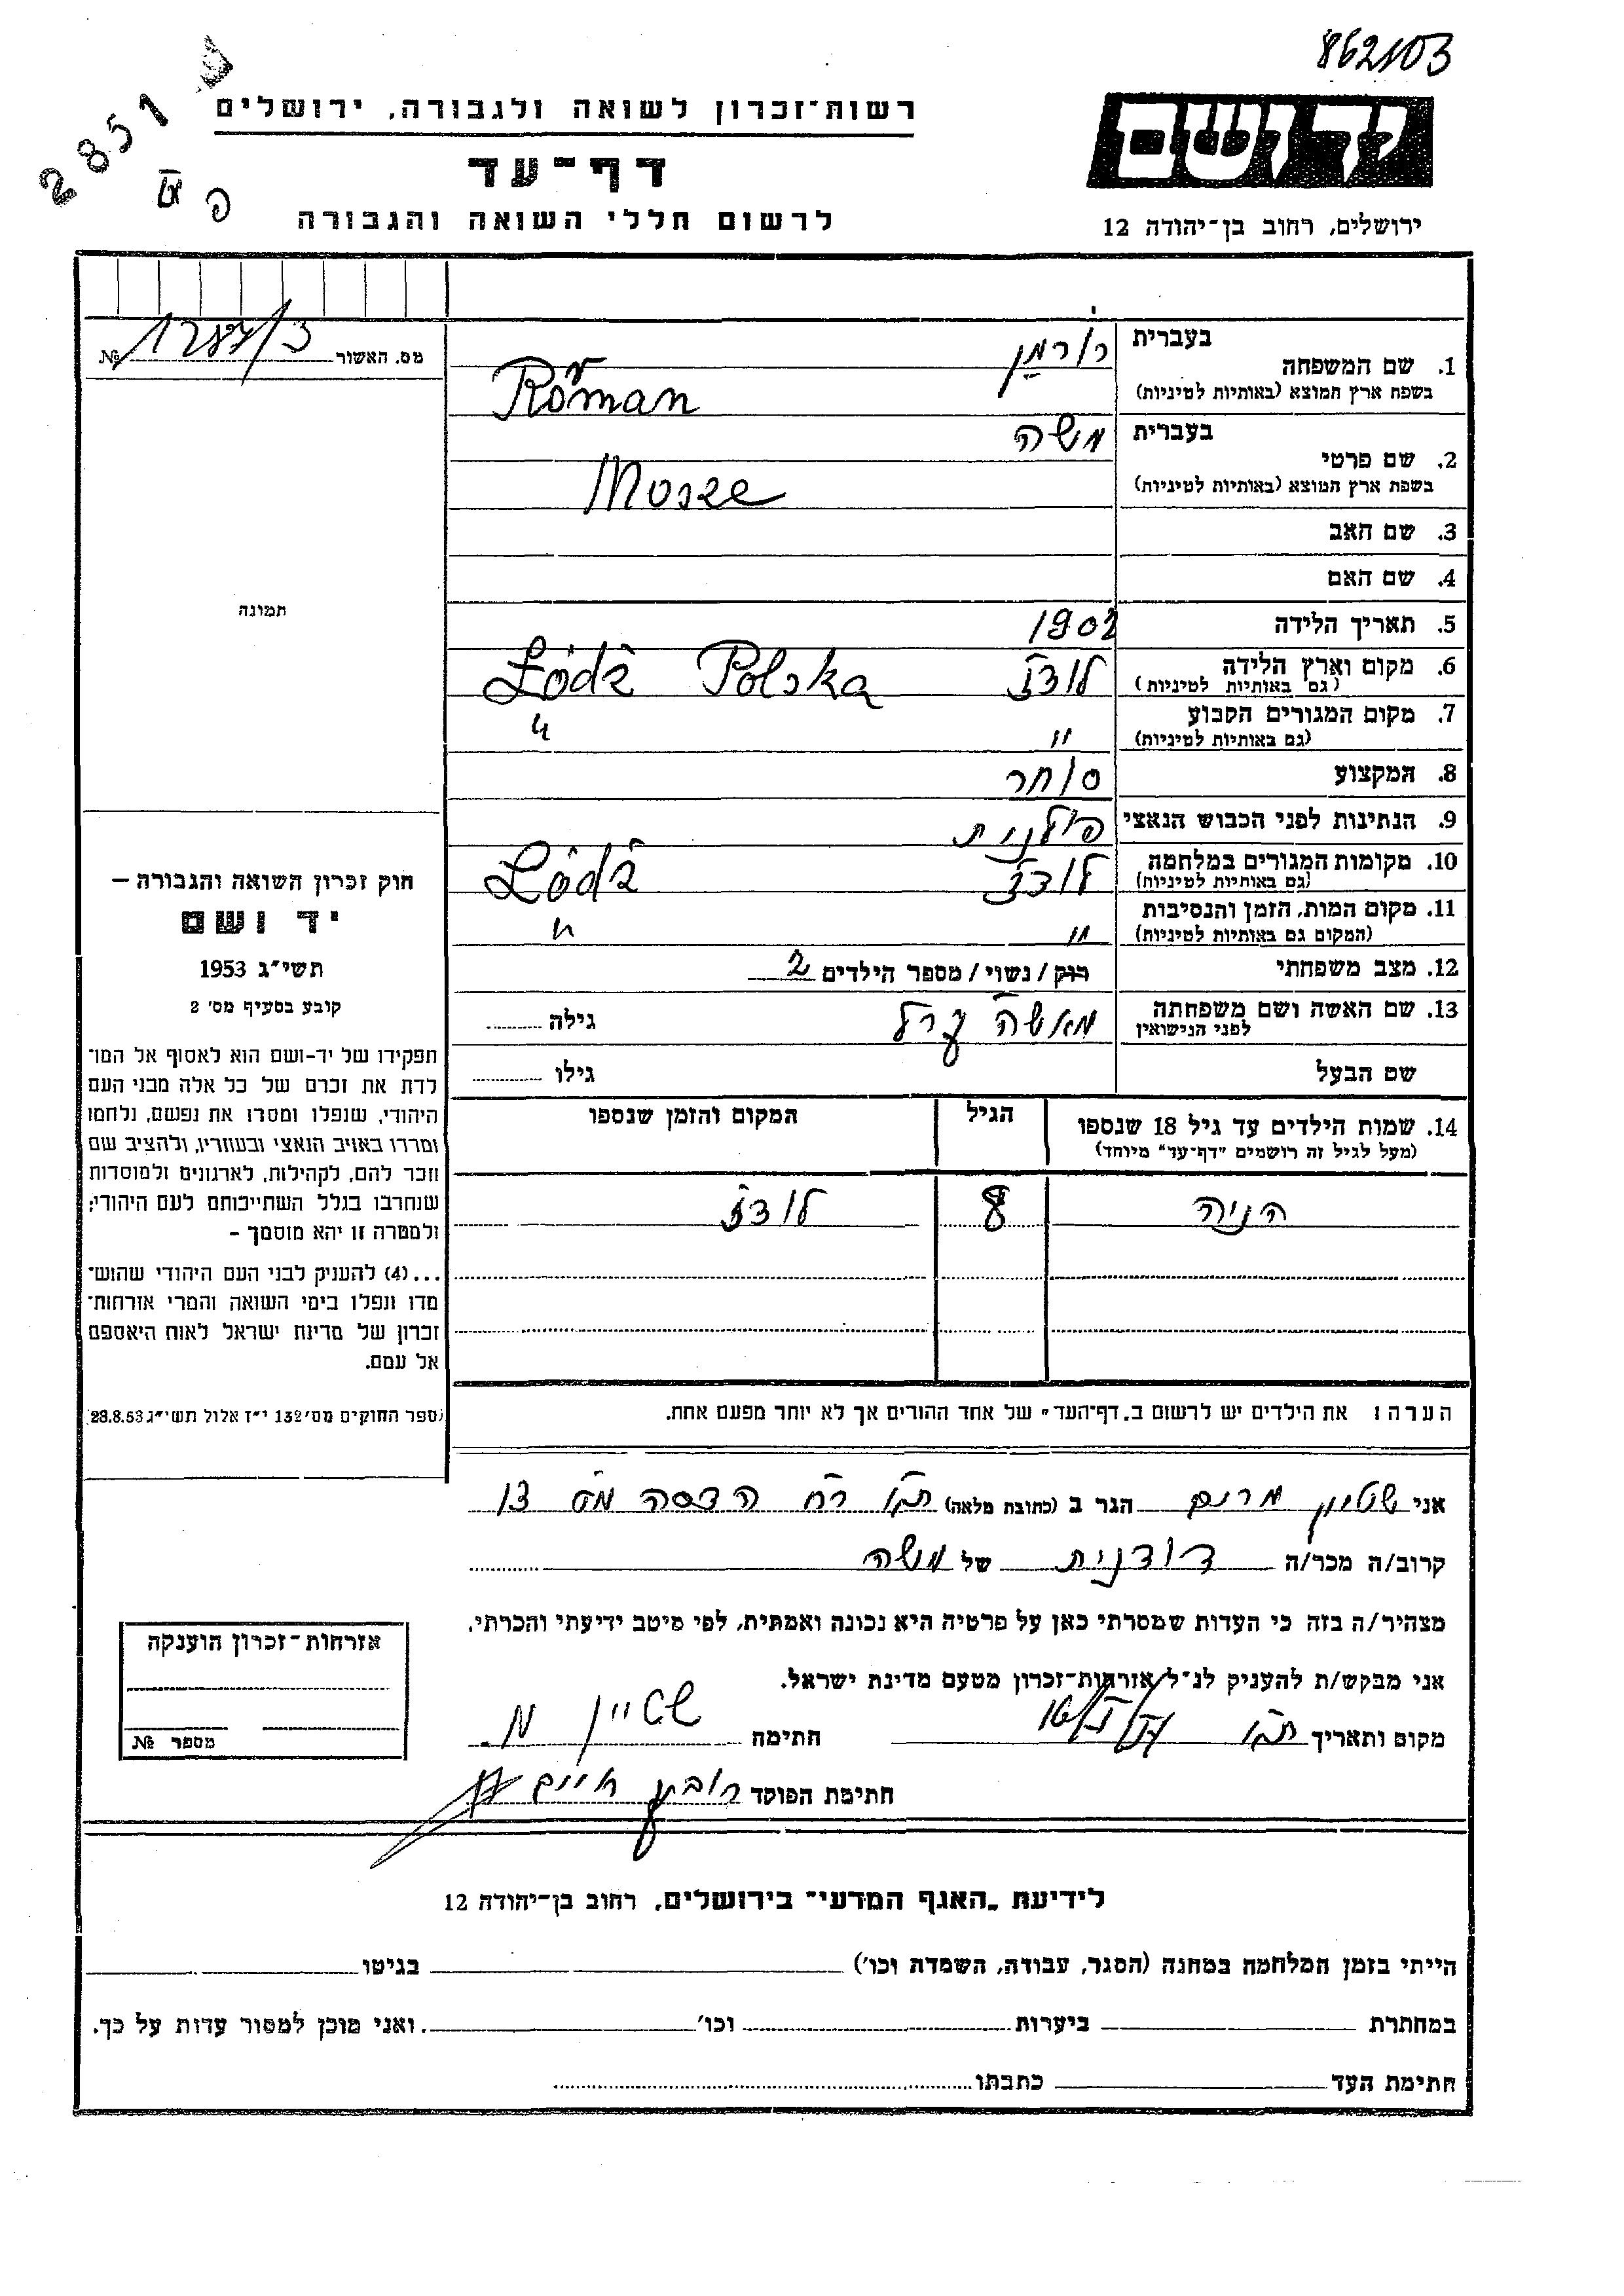 862103
2851
רשות־זכרון לשואה ולגבורה, ירושלים
דף־עד
לרשום חללי השואה והגבורה
יד ושם
ירושלים, רחוב בן־יהודה 12
מס. האשור №
1. שם המשפחה
בעברית
רורמן
בשפת ארץ המוצא (באותיות לטיניות)
Roman
2. שם פרטי
בעברית
משה
בשפת ארץ המוצא (באותיות לטיניות)
Mosze
3. שם האב
4. שם האם
5. תאריך הלידה 1902
6. מקום וארץ הלידה
(גם באותיות לטיניות)
לודז Łódź Polska
7. מקום המגורים הקבוע
(גם באותיות לטיניות)
" "
8. המקצוע סוחר
9. הנתינות לפני הכבוש הנאצי פולנית
10. מקומות המגורים במלחמה
(גם באותיות לטיניות)
לודז Łódź
11. מקום המות, הזמן והנסיבות
(המקום גם באותיות לטיניות)
" "
12. מצב משפחתי רוק / נשוי / מספר הילדים 2
13. שם האשה ושם משפחתה
לפני הנישואין
מאשה גילה
שם הבעל גילו
14. שמות הילדים עד גיל 18 שנספו
(מעל לגיל זה רושמים "דף־עד" מיוחד)
הגיל
המקום והזמן שנספו
הניה 8 לודז
הערה: את הילדים יש לרשום ב"דף־העד" של אחד ההורים אך לא יותר מפעם אחת.
תמונה
חוק זכרון השואה והגבורה –
יד ושם
תשי"ג 1953
קובע בסעיף מס' 2
תפקידו של יד-ושם הוא לאסוף אל המו־
לדת את זכרם של כל אלה מבני העם
היהודי, שנפלו ומסרו את נפשם, נלחמו
ומררו באויב הנאצי ובעוזריו, ולהציב שם
וזכר להם, לקהילות, לארגונים ולמוסדות
שנחרבו בגלל השתייכותם לעם היהודי;
ולמטרה זו יהא מוסמך –
...(4) להעניק לבני העם היהודי שהוש־
מדו ונפלו בימי השואה והמרי אזרחות־
זכרון של מדינת ישראל לאות היאספם
אל עמם.
(ספר החוקים מס' 132 י"ז אלול תשי"ג 28.8.53)
אני שטיין מרים הגר ב (כתובת מלאה) ת"א רח הדסה מס 13
קרוב/ה מכר/ה דודנית של משה
מצהיר/ה בזה כי העדות שמסרתי כאן על פרטיה היא נכונה ואמתית, לפי מיטב ידיעתי והכרתי.
אני מבקש/ת להעניק לנ"ל אזרחות־זכרון מטעם מדינת ישראל.
מקום ותאריך ת"א חתימה שטיין מ.
חתימת הפוקד חיים
אזרחות־זכרון הוענקה
מספר №
לידיעת „האגף המדעי" בירושלים, רחוב בן־יהודה 12
הייתי בזמן המלחמה במחנה (הסגר, עבודה, השמדה וכו') בגיטו
במחתרת ביערות וכו' ואני מוכן למסור עדות על כך.
חתימת העד כתבתו